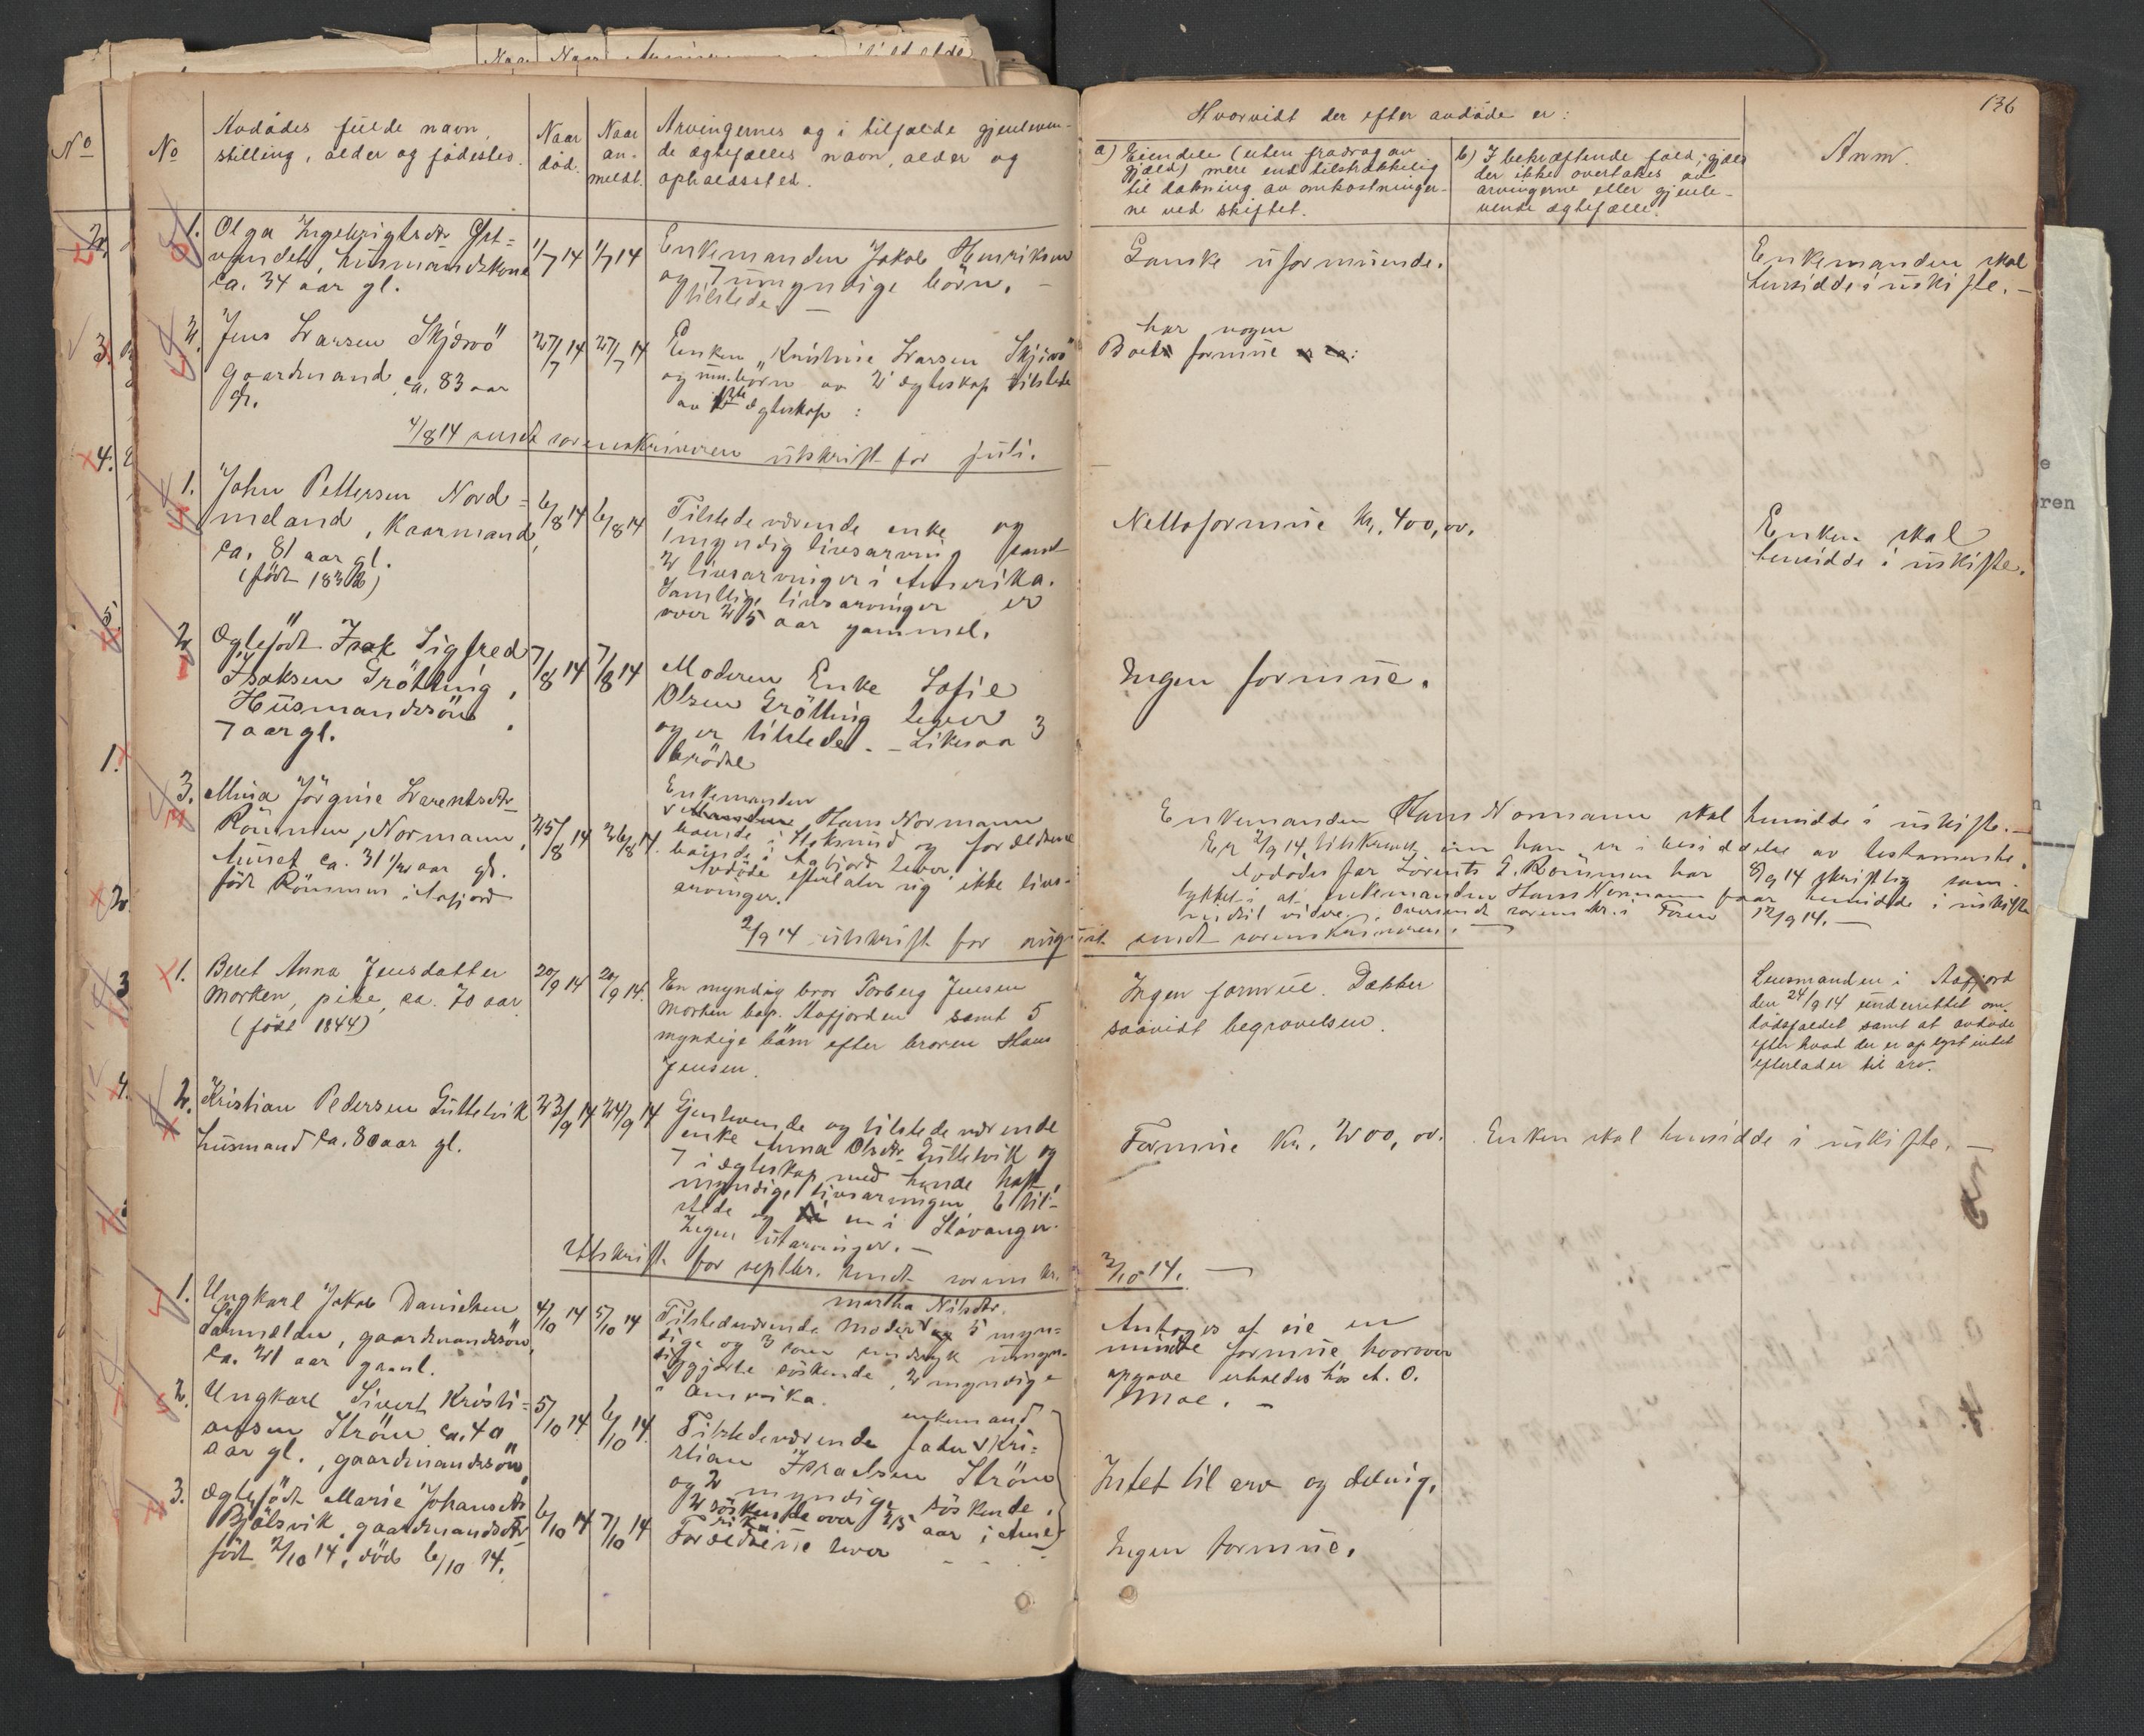 136
No
Avdødes fulde navn,
stilling, alder og fødested.
Naar
død.
Naar
an-
meldt.
Arvingernes og i tilfælde gjenleven-
de ægtefælles navn, alder og
opholdssted.
Hvorvidt der efter avdøde er:
a) Eiendele (uten fradrag av
gjæld) mere end tilstrækkelig
til dækning av omkostninger-
ne ved skiftet.
b) I bekræftende fald, gjæld
der ikke overtakes av
arvingerne eller gjenle-
vende ægtefælle.
Anm.
1. Olga Ingebrigtsdtr
husmandskone
ca. 34 aar gl.
1/7 14
1/7 14
Enkemanden Jakob Henriksen
og 7 umyndige børn. -
tilstede
Ganske uformuende.
Enkemanden skal
hensidde i uskifte. -
2. Jens Larsen Skjærvö
Gaardmand, ca. 83 aar
gl.
27/7 14
27/7 14
Enken Kristine Larsen
og um. børn av 2 ægteskap tilstede
av 1ste ægteskap:
har nogen
Boet formue
4/8 14 sendt sorenskriveren utskrift for juli.
1. John Pettersen Nord-
meland, Kaarmand,
ca. 81 aar gl.
(født 1832)
6/8 14
6/8 14
Tilstedeværende enke og
1 myndig livsarving samt
2 livsarvinger i Amerika.
Samtlige livsarvinger er
over 25 aar gammel.
Nettoformue kr. 400,00.
Enken skal
hensidde i uskifte.
2 Ægtefødt Isak Sigfred
Isaksen Grötting,
Husmandssön
7 aar gl.
7/8 14
7/8 14
Moderen Enke Sofie
Olsen Grötting lever
og er tilstede. - Likesaa 3
brödre
Ingen formue.
3. Mina Jörgine Larentsdtr
Römmen, Normann,
ca. 31 1/2 aar gl.
født Römmen i Aafjord
25/8 14
26/8 14.
Enkemanden
Hans Normann
boende i Stoksund og forældrene
boende i Aafjord lever.
Avdøde efterlater sig ikke livs-
arvinger.
Enkemanden Hans Normann skal hensidde i uskifte. -
Er 2/9 14 tilskrevet om han er i besiddelse av testamente.
Avdødes far Lorents E. Römmen har 8/9 14 skriftlig sam-
tykket i at enkemanden Hans Normann faar hensidde i uskifte
indtil videre. Oversendt sorenskr. i Fosen 12/9 14. -
2/9 14 utskrift for august sendt sorenskriveren.
1. Beret Anna Jensdatter
Morken, pike, ca. 70 aar
(født 1844)
20/9 14
20/9 14.
En myndig bror Torberg Jensen
Morken bop. Aafjorden samt 5
myndige børn efter broren Hans
Jensen.
Ingen formue. Dækker
saavidt begravelsen.
Lensmanden i Aafjord
den 24/9 14 underrettet om
dødsfaldet samt at avdøde
efter hvad der er oplyst intet
efterlader til arv.
2. Kristian Pedersen Guttelvik
husmand ca. 80 aar gl.
23/9 14
24/9 14
Gjenlevende og tilstedeværende
enke Anna Olsdtr Guttelvik og
7 i ægteskap med hende hatt
myndige livsarvinger 6 til-
stede og en i Stavanger.
Ingen utarvinger. -
Formue kr. 200,00.
Enken skal hensidde i uskifte. -
Utskrift for septbr. sendt sorenskr. 2/10 14. -
1. Ungkarl Jakob Danielsen
gaardmandssön,
ca. 21 aar gaml.
4/10 14
5/10 14
Martha Nilsdtr.
Tilstedeværende moder og 5 myn-
dige og 3 umyn-
diggjorte söskende, 2 myndige
i Amerika.
Antages at eie en
mindre formue hvorover
opgave erholdes hos A. O.
Moe. -
2. Ungkarl Sivert Kristi-
ansen Ström ca. 40
aar gl., gaardmandssön
5/10 14
6/10 14.
enkemand
Tilstedeværende fader Kri-
stian Israelsen Ström
og 2 myndige söskende.
2 söskende over 25 aar i Ame-
rika
Intet til arv og deling.
3. Ægtefødt Marie Johansdtr
gaardmandsdtr
født 2/10 14, død 6/10 14.
6/10 14
7/10 14
Forældrene lever - - -
Ingen formue.